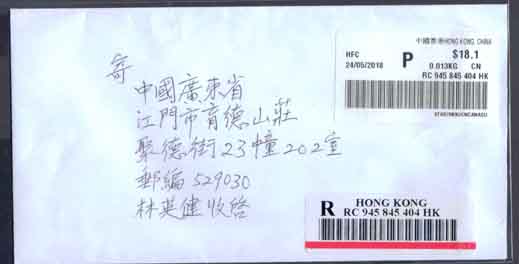 寄
中國廣東省
江門市育德山莊
聚德街23幢202室
郵編529030
林英健收啓
中國香港HONG KONG, CHINA
HFC
$18.1
24/05/2018
P
0.013KG
CN
RC 945 845 404 HK
R
HONG KONG
RC 945 845 404 HK